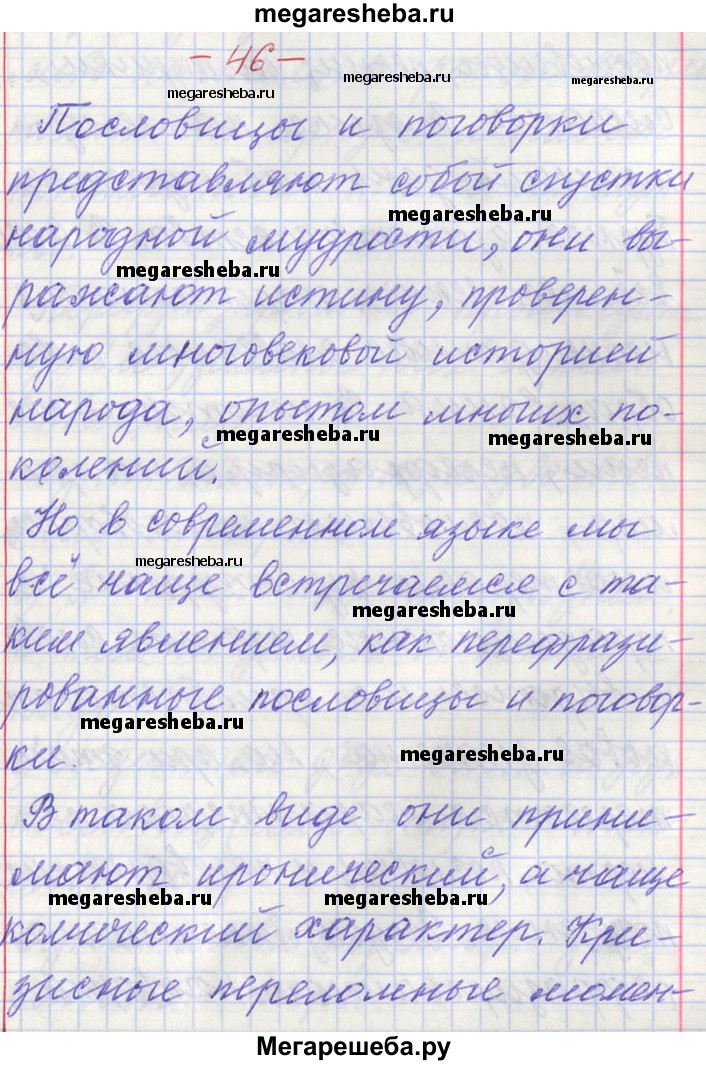 megaresheba.ru
- 46 -
megaresheba.ru
megaresheba.ru
megaresheba.ru
Пословицы и поговорки
представляют собой сгустки
megaresheba.ru
народной мудрости, они вы-
megaresheba.ru
ражают истину, проверен-
ную многовековой историей
народа, опытом многих по-
megaresheba.ru
megaresheba.ru
колений.
Но в современном языке мы
megaresheba.ru
всё чаще встречаемся с та-
megaresheba.ru
ким явлением, как перефрази-
рованные пословицы и поговор-
megaresheba.ru
ки.
megaresheba.ru
В таком виде они прини-
мают иронический, а чаще
megaresheba.ru
megaresheba.ru
комический характер. Кри-
зисные переломные момен-
Мегарешеба.ру